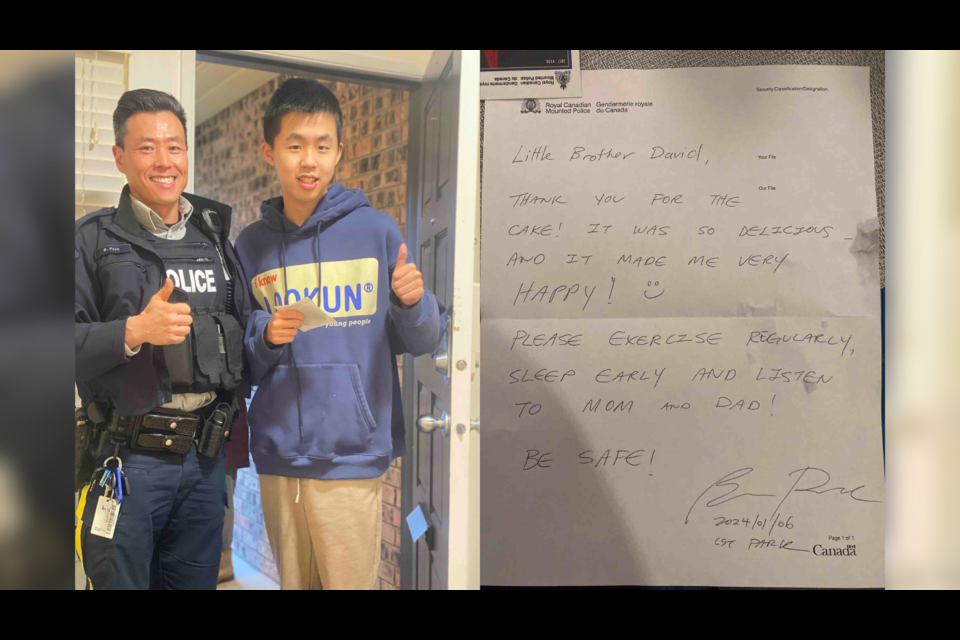 POLICE
I know
LOOKUN®
young people
Royal Canadian
Mounted Police
Gendarmerie royale
du Canada
Security Classification/Designation
Royal Canadian Gendarmerie royale
Mounted Police du Canada
Your File
Our File
Little Brother David,
THANK YOU FOR THE
CAKE! IT WAS SO DELICIOUS
AND IT MADE ME VERY
HAPPY!
PLEASE EXERCISE REGULARLY,
SLEEP EARLY AND LISTEN
TO MOM AND DAD!
BE SAFE!
2024/01/06
CST PARK
Page 1 of 1
Canada